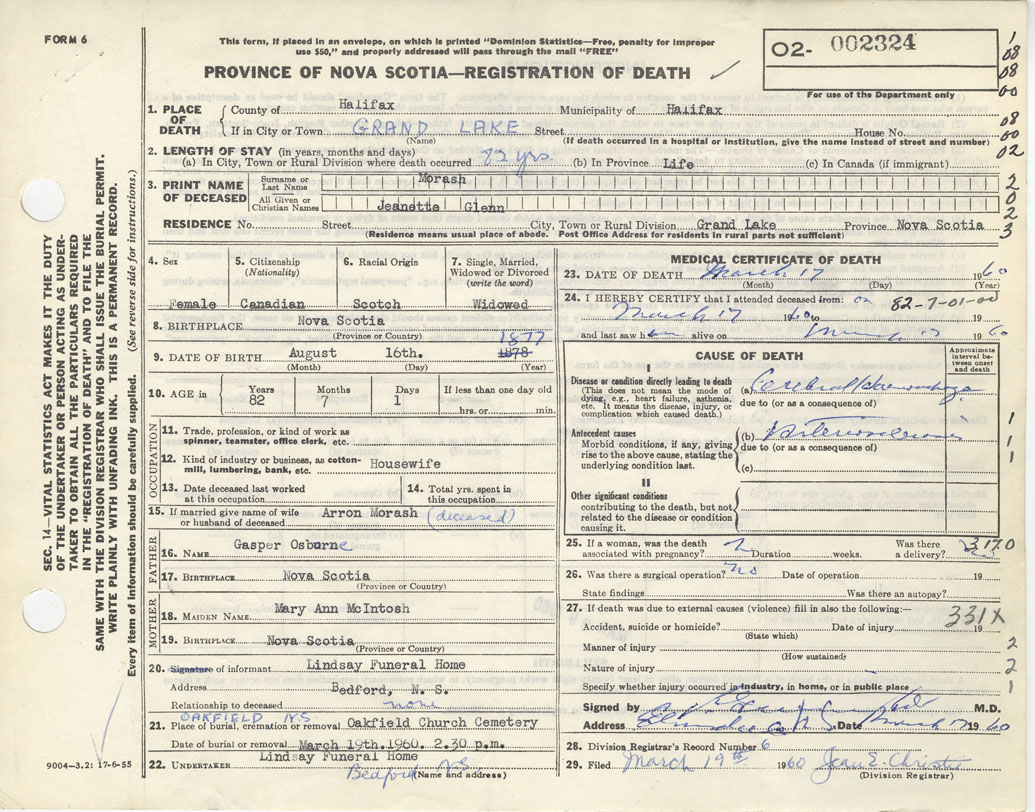 FORM 6
This form, if placed in an envelope, on which is printed "Dominion Statistics—Free, penalty for improper
use $50," and properly addressed will pass through the mail "FREE"
PROVINCE OF NOVA SCOTIA—REGISTRATION OF DEATH
02- 002324
For use of the Department only
1
08
08
00
08
00
02
2
0
2
3
SEC. 14—VITAL STATISTICS ACT MAKES IT THE DUTY
OF THE UNDERTAKER OR PERSON ACTING AS UNDER-
TAKER TO OBTAIN ALL THE PARTICULARS REQUIRED
IN THE "REGISTRATION OF DEATH" AND TO FILE THE
SAME WITH THE DIVISION REGISTRAR WHO SHALL ISSUE THE BURIAL PERMIT.
WRITE PLAINLY WITH UNFADING INK. THIS IS A PERMANENT RECORD.
Every item of information should be carefully supplied. (See reverse side for instructions.)
1. PLACE OF DEATH
County of Halifax Municipality of Halifax
If in City or Town GRAND LAKE Street House No.
(Name) (If death occurred in a hospital or institution, give the name instead of street and number)
2. LENGTH OF STAY (in years, months and days)
(a) In City, Town or Rural Division where death occurred 82 yrs. (b) In Province Life (c) In Canada (if immigrant)
3. PRINT NAME OF DECEASED
Surname or Last Name Morash
All Given or Christian Names Jeanette Glenn
RESIDENCE No. Street City, Town or Rural Division Grand Lake Province Nova Scotia
(Residence means usual place of abode. Post Office Address for residents in rural parts not sufficient)
4. Sex Female
5. Citizenship (Nationality) Canadian
6. Racial Origin Scotch
7. Single, Married, Widowed or Divorced (write the word) Widowed
8. BIRTHPLACE Nova Scotia
(Province or Country)
9. DATE OF BIRTH August 16th. 1878 1877
(Month) (Day) (Year)
10. AGE in Years 82 Months 7 Days 1 If less than one day old hrs. or min.
OCCUPATION
11. Trade, profession, or kind of work as
spinner, teamster, office clerk, etc.
12. Kind of industry or business, as cotton-
mill, lumbering, bank, etc. Housewife
13. Date deceased last worked
at this occupation
14. Total yrs. spent in
this occupation
15. If married give name of wife
or husband of deceased Arron Morash (deceased)
FATHER
16. NAME Gasper Osburne
17. BIRTHPLACE Nova Scotia
(Province or Country)
MOTHER
18. MAIDEN NAME Mary Ann McIntosh
19. BIRTHPLACE Nova Scotia
(Province or Country)
20. Signature of informant Lindsay Funeral Home
Address Bedford, N. S.
Relationship to deceased none
OAKFIELD N.S.
21. Place of burial, cremation or removal Oakfield Church Cemetery
Date of burial or removal March 19th.1960. 2.30 p.m.
22. UNDERTAKER Lindsay Funeral Home
Bedford NS (Name and address)
9004-3.2: 17-6-55
MEDICAL CERTIFICATE OF DEATH
23. DATE OF DEATH March 17 1960
(Month) (Day) (Year)
24. I HEREBY CERTIFY that I attended deceased from: on 82-7-01-00
March 17 1960 to
and last saw her alive on March 17 60
CAUSE OF DEATH
Approximate interval between onset and death
I
Disease or condition directly leading to death
(This does not mean the mode of
dying, e.g., heart failure, asthenia,
etc. It means the disease, injury, or
complication which caused death.)
(a) Cerebral Haemorrhage
due to (or as a consequence of)
Antecedent causes
Morbid conditions, if any, giving
rise to the above cause, stating the
underlying condition last.
(b)
due to (or as a consequence of)
(c)
1
1
1
II
Other significant conditions
contributing to the death, but not
related to the disease or condition
causing it.
25. If a woman, was the death
associated with pregnancy? Duration weeks. Was there
a delivery? 3170
26. Was there a surgical operation? no Date of operation 19
State findings Was there an autopsy?
27. If death was due to external causes (violence) fill in also the following:—
331X
Accident, suicide or homicide? Date of injury 19
(State which)
Manner of injury 2
(How sustained)
Nature of injury 2
Specify whether injury occurred in industry, in home, or in public place 1
Signed by M.D.
Address Date March 17 1960
28. Division Registrar's Record Number 6
29. Filed March 19th 1960 Jean E. Christie
(Division Registrar)